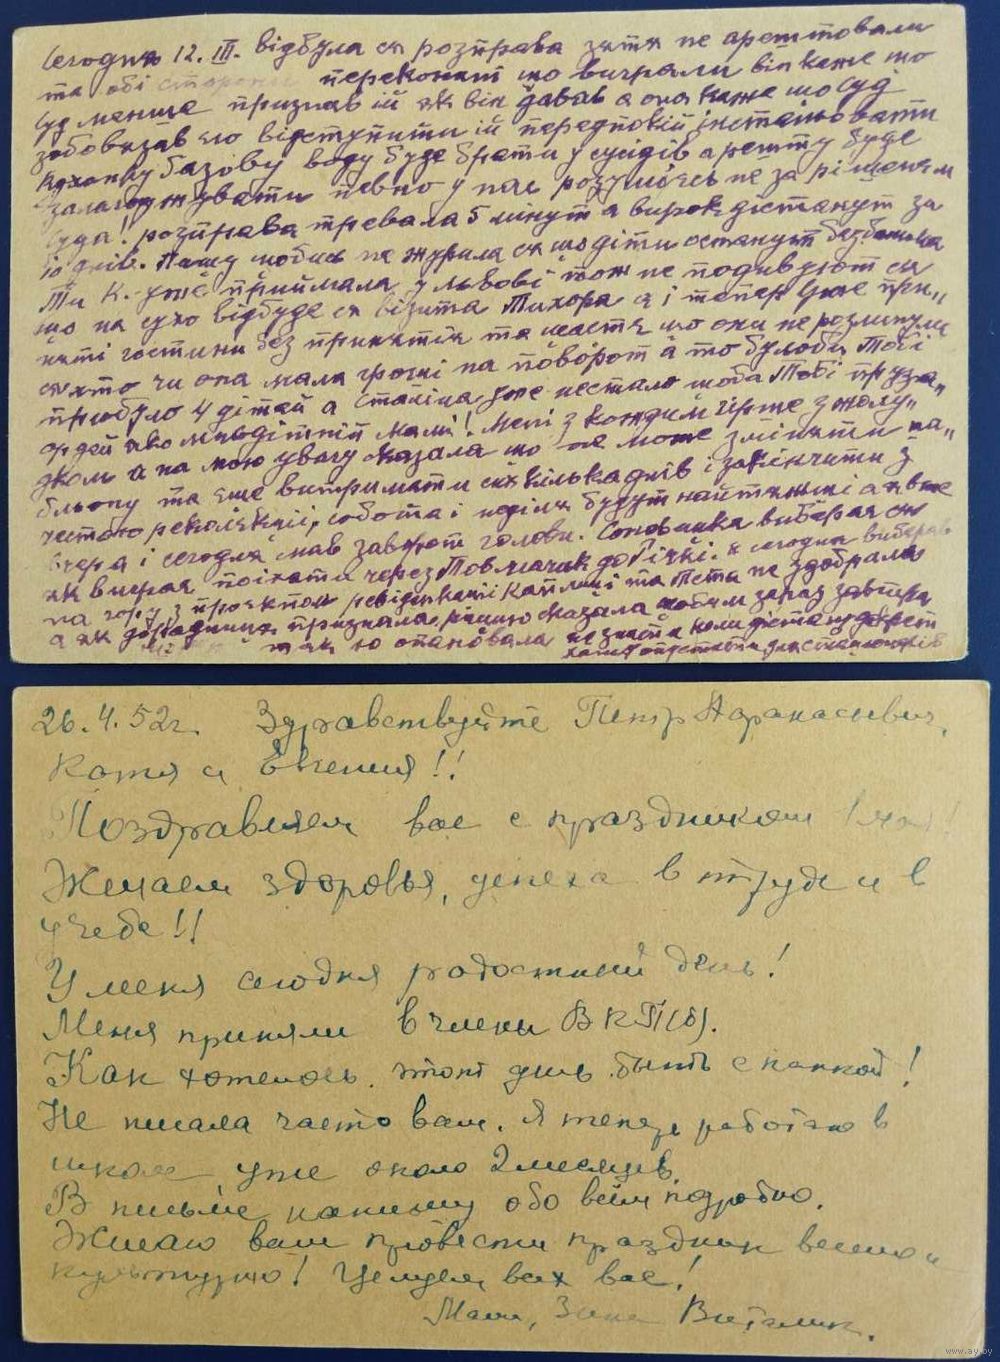 Сегодня 12. III. відбула ся розправа зятя не арештовали
та обі сторони переконані що виграли він каже що
суд менше признав ій як він давав а она каже що суд
зобовязав його відступити ій передпокій
кухонку базову воду буде брати у сусідів а решту буде
залагоджувати певно у нас розуміесь не за рішеням
суда! розправа тревала 5 мінут а вирок дістанут за
10 днів. Пашу мобись не журила ся що діти останут без батька
Ти К. уже приймала у Львові тож не подивуют ся
що на сухо відбуде ся візита Тихора а і тепер уже при„
няті гостини без принятія та щастя що они не розминули
ся хто чи она мала гроші на поворот а то було би Тобі
прибуло 4 дітей а Сталіна уже нестало щоба Тобі
ордей яко многодітній мамі! Мені з кождим гірше з жолу„
дком а на мою увагу сказала що не може змінити
та ще витримати сих кілька днів і закінчити з
реколєкціі, собота і неділя будут найтяжші а я вже
вчера і сегодня мав заворот голови. вибирая ся
як виграя поіхати через Товмачик до Печні. сегодня
на гору з проєктом та Тета не здобрала
а як признала, рішию сказала
так ю опановала не знати коли дістану
26.4.52г. Здравствуйте Петр Афанасьевич,
Катя и Евгения!!
Поздравляем вас с праздником 1 мая!
Желаем здоровья, успеха в труде и в
учебе!!
У меня сегодня радостный день!
Меня приняли в члены ВКП(б).
Как хотелось этот день быть с папкой!
Не писала часто вам. Я теперь работаю в
школе уже около 2 месяцев.
В письме напишу обо всем подробно.
Желаю вам провести праздник весело и
культурно! Целуем всех вас!
Маша, Зина Виталик.
www.ay.by